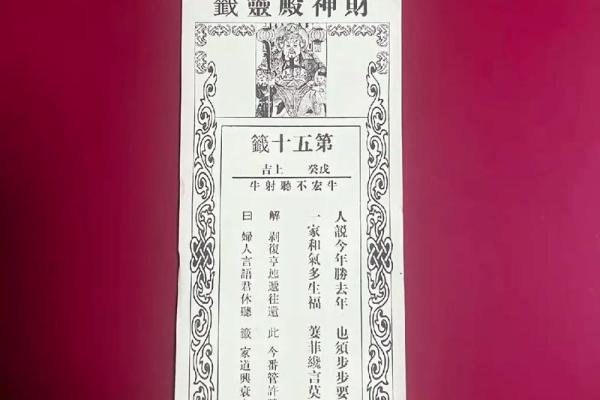 財神殿靈籤
第五十籤
戊癸 上吉
牛宏不聽射牛
人說今年勝去年 也須步步要
一家和氣多生福 萋菲讒言莫
解 剥復亨迍遞往還 此 今番管許
曰 婦人言語君休聽 籤 家道興衰